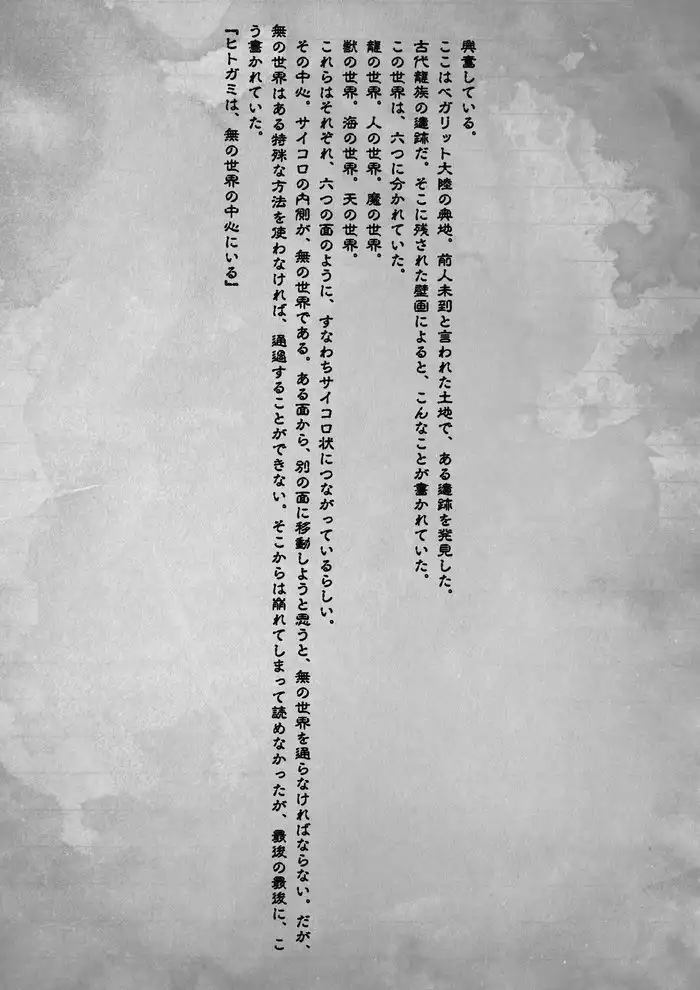 興奮している。
ここはベガリット大陸の奥地。前人未到と言われた土地で、ある遺跡を発見した。
古代龍族の遺跡だ。そこに残された壁画によると、こんなことが書かれていた。
この世界は、六つに分かれていた。
龍の世界。人の世界。魔の世界。
獣の世界。海の世界。天の世界。
これらはそれぞれ、六つの面のように、すなわちサイコロ状につながっているらしい。
その中心。サイコロの内側が、無の世界である。ある面から、別の面に移動しようと思うと、無の世界を通らなければならない。だが、
無の世界はある特殊な方法を使わなければ、通過することができない。そこからは崩れてしまって読めなかったが、最後の最後に、こ
う書かれていた。
『ヒトガミは、無の世界の中心にいる』